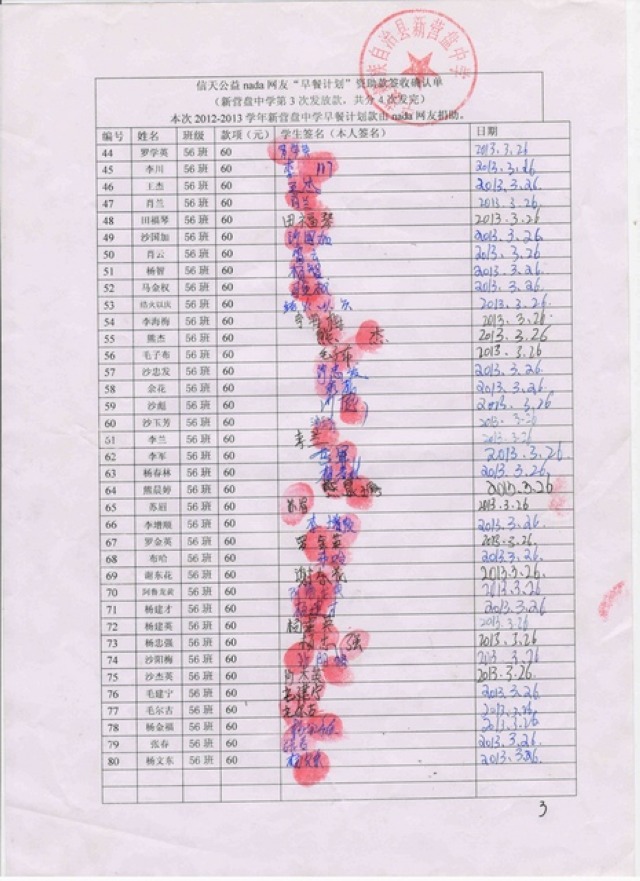 族自治县新营盘中学
信天公益nada网友“早餐计划”资助款签收确认单
（新营盘中学第3次发放款，共分4次发完）
本次2012-2013学年新营盘中学早餐计划款由nada网友捐助。
编号 姓名 班级 款项（元） 学生签名（本人签名） 日期
44 罗学英 56班 60 2013.3.26
45 李川 56班 60 李川 2013.3.26
46 王杰 56班 60 王杰 2013.3.26
47 肖兰 56班 60 肖兰 2013.3.26
48 田福琴 56班 60 田福琴 2013.3.26
49 沙国加 56班 60 沙国加 2013.3.26
50 肖云 56班 60 2013.3.26
51 杨智 56班 60 杨智 2013.3.26
52 马金权 56班 60 2013.3.26
53 结火以庆 56班 60 2013.3.26
54 李海梅 56班 60 李海梅 2013.3.26
55 熊杰 56班 60 熊杰 2013.3.26
56 毛子布 56班 60 毛子布 2013.3.26
57 沙忠发 56班 60 沙忠发 2013.3.26
58 余花 56班 60 2013.3.26
59 沙彪 56班 60 2013.3.26
60 沙玉芳 56班 60 2013.3.26
61 李兰 56班 60 李兰 2013.3.26
62 李军 56班 60 李军 2013.3.26
63 杨春林 56班 60 2013.3.26
64 熊晨婷 56班 60 2013.3.26
65 苏眉 56班 60 2013.3.26
66 李增顺 56班 60 2013.3.26
67 罗金英 56班 60 罗金英 2013.3.26
68 布哈 56班 60 布哈 2013.3.26
69 谢东花 56班 60 谢东花 2013.3.26
70 阿鲁友黄 56班 60 2013.3.26
71 杨建才 56班 60 杨建才 2013.3.26
72 杨建英 56班 60 2013.3.26
73 杨忠强 56班 60 2013.3.26
74 沙阳梅 56班 60 2013.3.26
75 沙杰英 56班 60 2013.3.26
76 毛建宁 56班 60 毛建宁 2013.3.26
77 毛尔古 56班 60 毛尔古 2013.3.26
78 杨金福 56班 60 2013.3.26
79 张春 56班 60 2013.3.26
80 杨文东 56班 60 2013.3.26
3